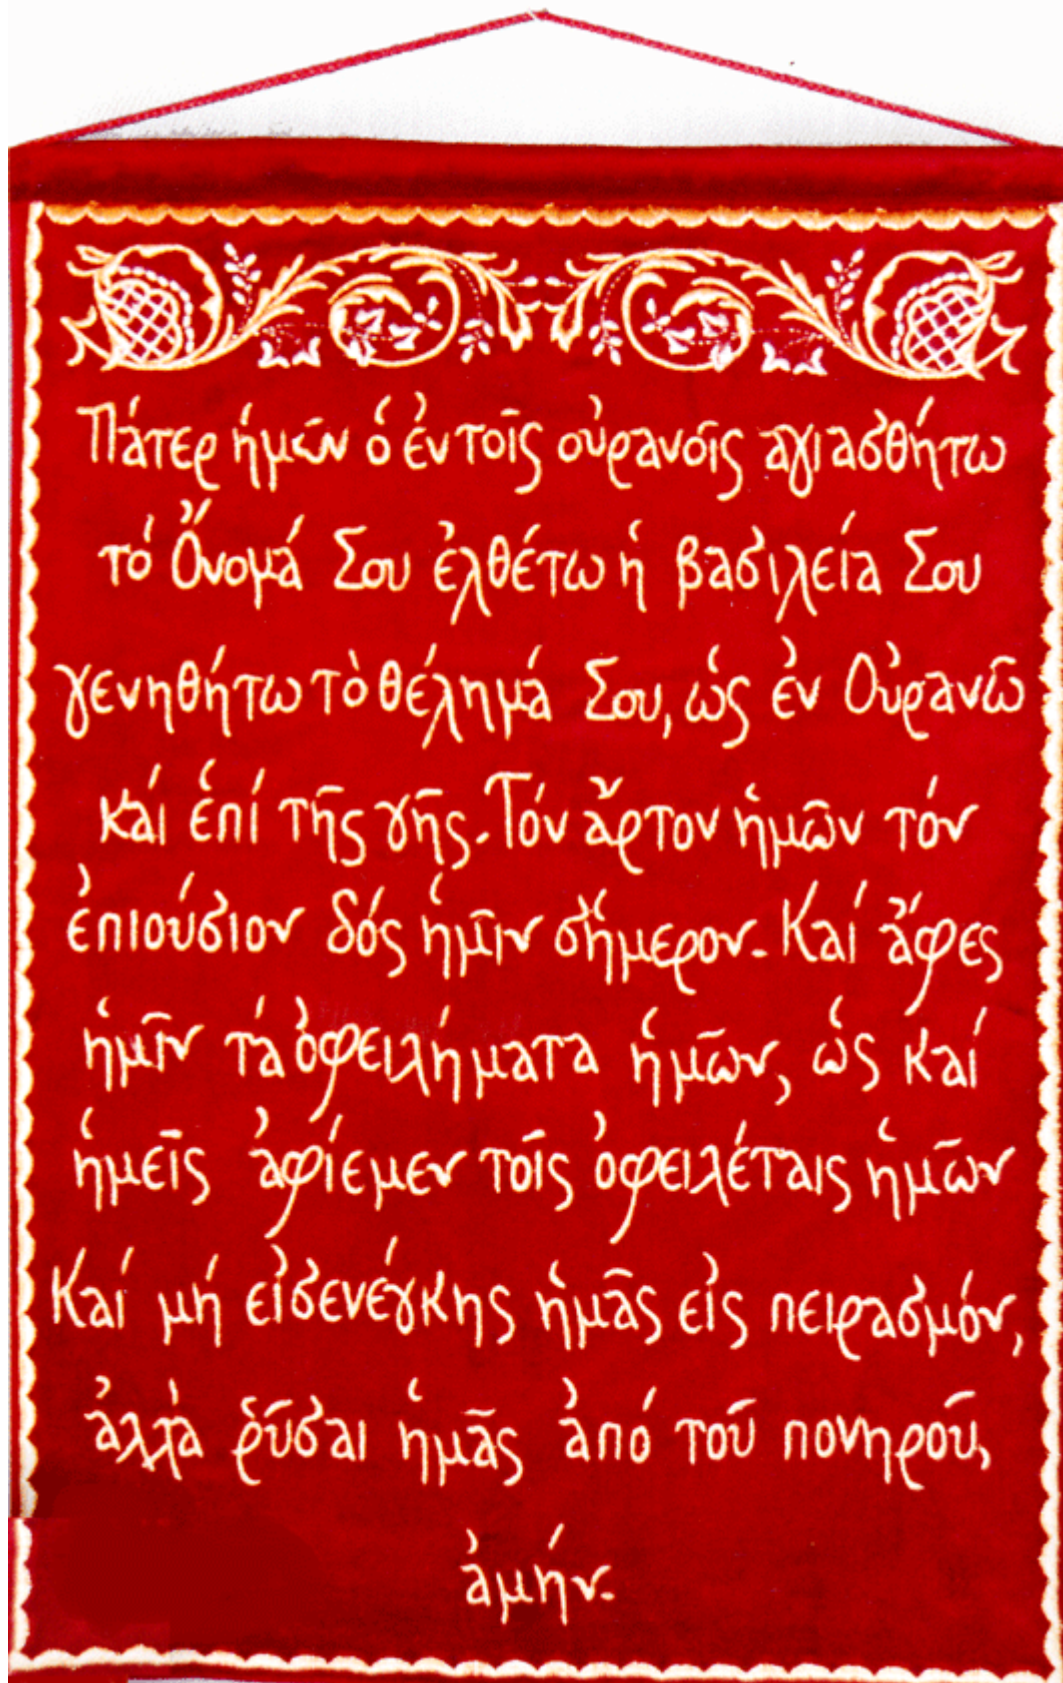 Πάτερ ἡμῶν ὁ ἐν τοῖς οὐρανοῖς αγιασθήτω
τό Ὄνομά Σου ἐλθέτω ἡ βασιλεία Σου
γενηθήτω τὸ θέλημά Σου, ὡς ἐν Οὐρανῶ
καί ἐπί τῆς γῆς. Τόν ἄρτον ἡμῶν τόν
ἐπιούσιον δός ἡμῖν σήμερον. Καί ἄφες
ἡμῖν τά ὀφειλήματα ἡμῶν, ὡς καί
ἡμεῖς ἀφίεμεν τοῖς ὀφειλέταις ἡμῶν
Καί μή εἰσενέγκης ἡμᾶς εἰς πειρασμόν,
ἀλλὰ ῥῦσαι ἡμᾶς ἀπό τοῦ πονηροῦ,
ἀμήν.